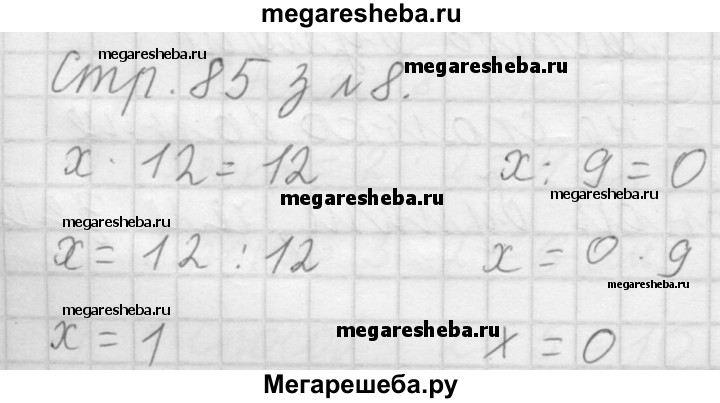 megaresheba.ru
megaresheba.ru
Стр. 85 з № 8.
megaresheba.ru
x · 12 = 12 x : 9 = 0
megaresheba.ru
megaresheba.ru
megaresheba.ru
x = 12 : 12 x = 0 · 9
megaresheba.ru
megaresheba.ru
x = 1 x = 0
megaresheba.ru
Мегарешеба.ру